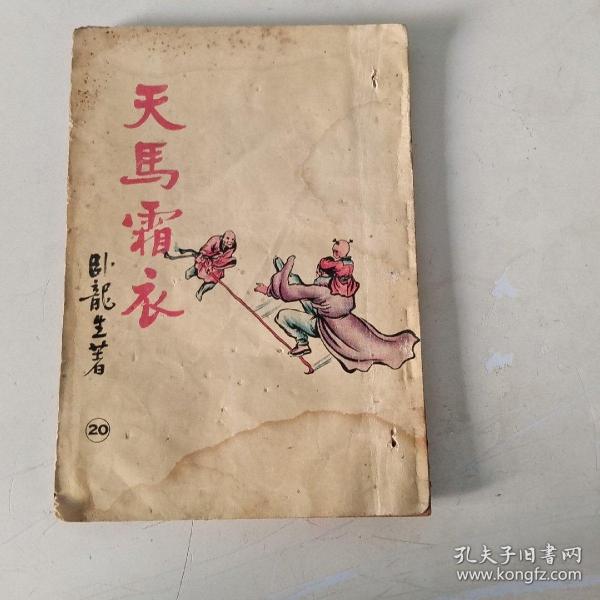 天馬霜衣
臥龍生著
20
孔夫子旧書网
www.kongfz.com